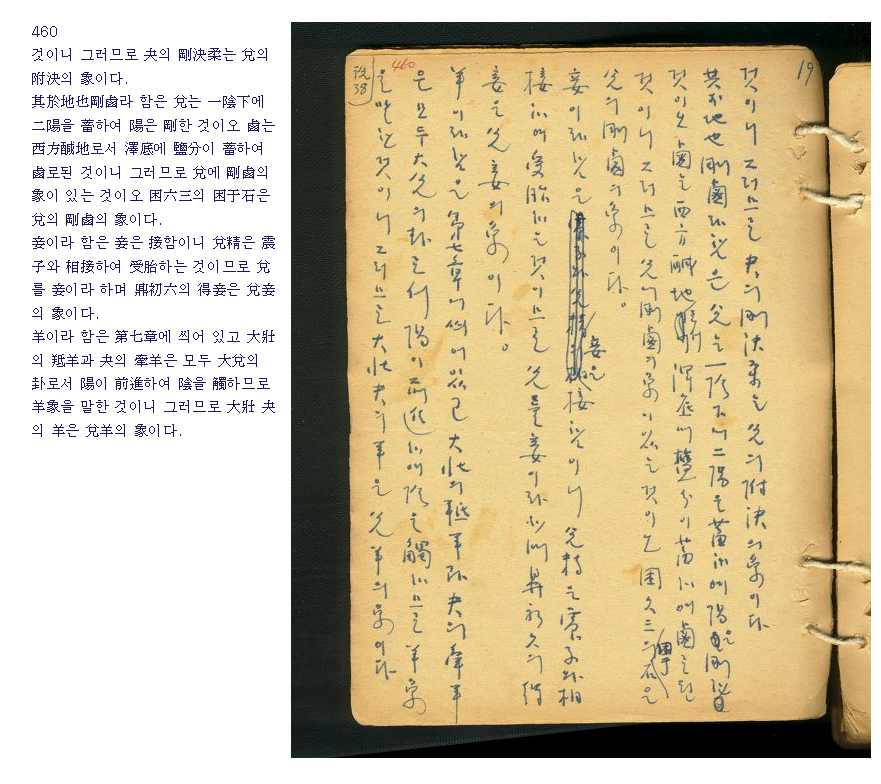 460
것이니 그러므로 夬의 剛決柔는 兌의
附決의 象이다.
其於地也剛鹵라 함은 兌는 一陰下에
二陽을 蓄하여 陽은 剛한 것이오 鹵는
西方鹹地로서 澤底에 鹽分이 蓄하여
鹵로된 것이니 그러므로 兌에 剛鹵의
象이 있는 것이오 困六三의 困于石은
兌의 剛鹵의 象이다.
妾이라 함은 妾은 接함이니 兌精은 震
子와 相接하여 受胎하는 것이므로 兌
를 妾이라 하며 鼎初六의 得妾은 兌妾
의 象이다.
羊이라 함은 第七章에 씌어 있고 大壯
의 羝羊과 夬의 牽羊은 모두 大兌의
卦로서 陽이 前進하여 陰을 觸하므로
羊象을 말한 것이니 그러므로 大壯 夬
의 羊은 兌羊의 象이다.
19
것이니 그러므로 夬의 剛決柔는 兌의 附決의 象이다
其於地也剛鹵라 함은 兌는 一陰下에 二陽을 蓄하여 陽은 剛한
것이오 鹵는 西方鹹地로서 澤底에 鹽分이 蓄하여 鹵로된
것이니 그러므로 兌에 剛鹵의 象이 있는 것이오 困六三의 困于石은
兌의 剛鹵의 象이다.
妾이라 함은 妾은 接함이니 兌精은 震子와 相
接하여 受胎하는 것이므로 兌를 妾이라 하며 鼎初六의 得
妾은 兌妾의 象이다.
羊이라 함은 第七章에 씌어 있고 大壯의 羝羊과 夬의 牽羊
은 모두 大兌의 卦로서 陽이 前進하여 陰을 觸하므로 羊象
을 말한 것이니 그러므로 大壯 夬의 羊은 兌羊의 象이다
460
說
38